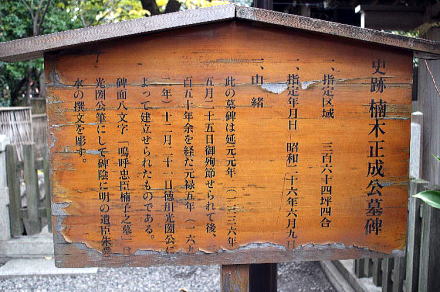 史跡 楠木正成公墓碑
一、指定区域 三百六十四坪四合
一、指定年月日 昭和二十六年六月九日
三、由緒
此の墓碑は延元元年(一三三六年)
五月二十五日御殉節せられて後、
百五十年余を経た元禄五年(一六
年)十二月二十一日徳川光圀公に
よって建立せられたものである。
碑面八文字「嗚呼忠臣楠子之墓」は
光圀公筆にして碑陰に明の遺臣朱舜
水の撰文を彫す。